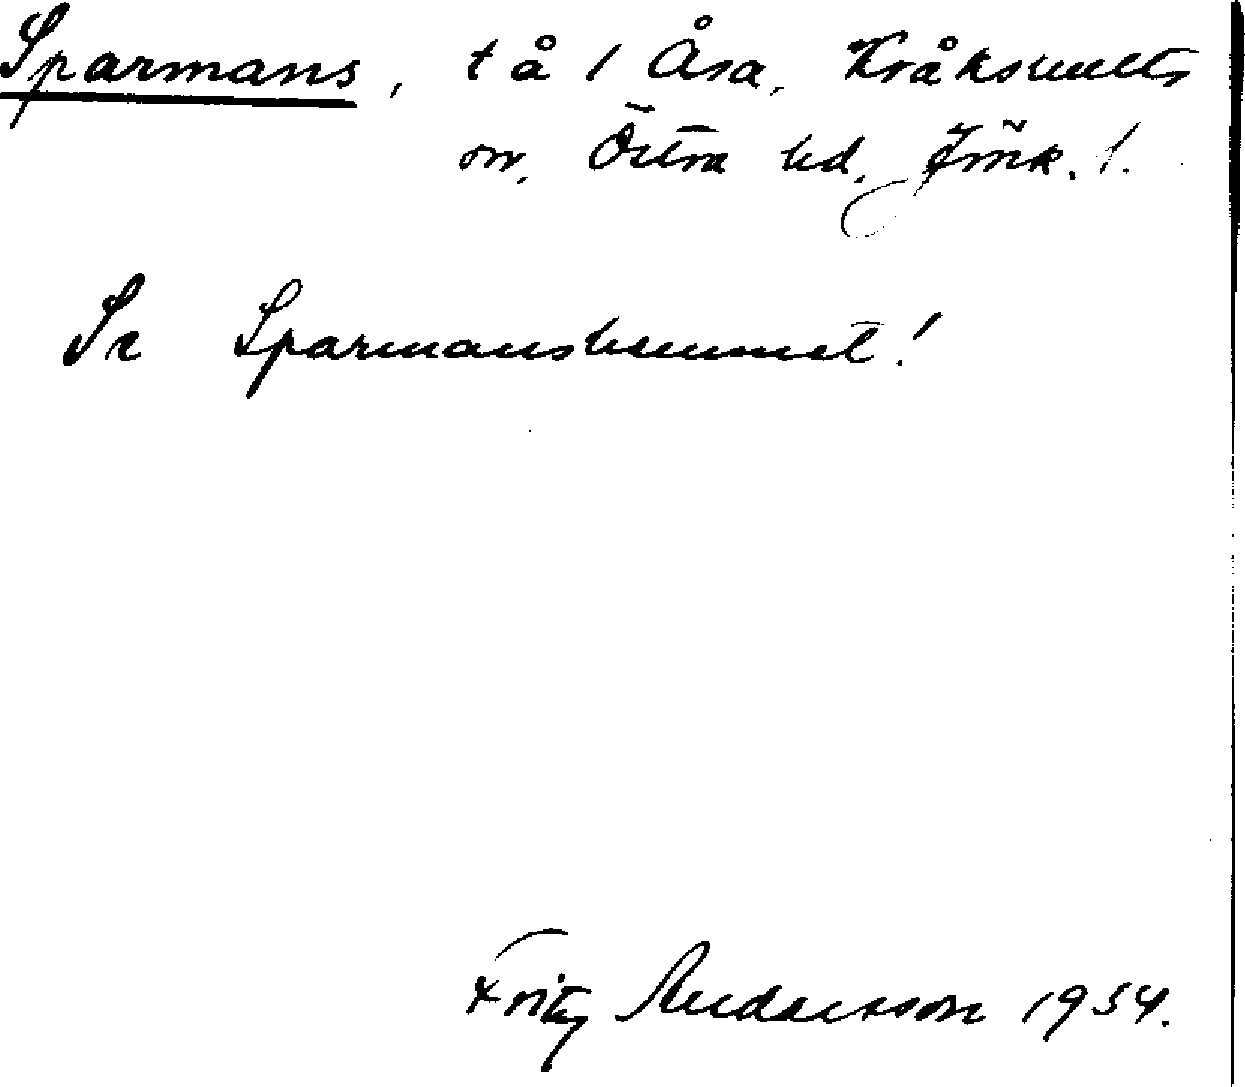 Sparmans, t å 1 Åsa, Kråksmults
sn, Östra hd, Jönk. l.
Se Sparmanshemmet!
Fritz Andersson 1954.